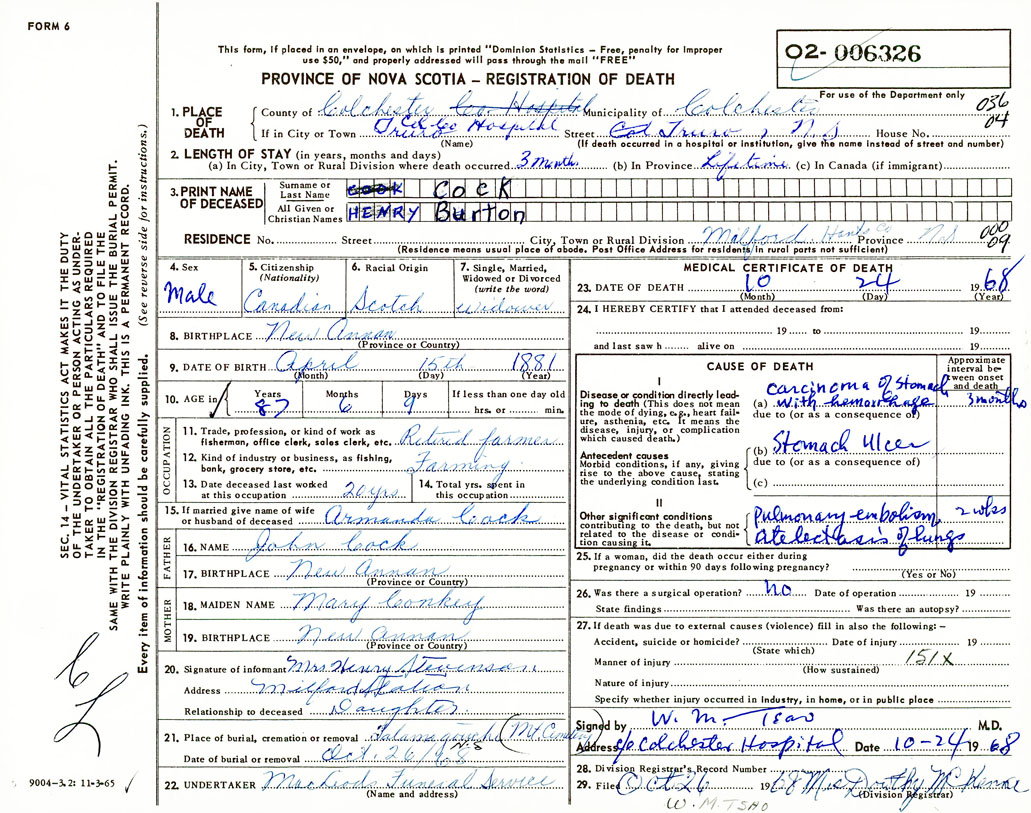 FORM 6
This form, if placed in an envelope, on which is printed "Dominion Statistics – Free, penalty for improper
use $50," and properly addressed will pass through the mail "FREE"
PROVINCE OF NOVA SCOTIA – REGISTRATION OF DEATH
02- 006326
For use of the Department only
036
04
1. PLACE OF DEATH
County of Colchester Co. Hospital Municipality of Colchester
If in City or Town Truro Col. Co Hospital Street Col Truro, N.S House No.
(Name) (If death occurred in a hospital or institution, give the name instead of street and number)
2. LENGTH OF STAY (in years, months and days)
(a) In City, Town or Rural Division where death occurred 3 months (b) In Province Lifetime (c) In Canada (if immigrant)
3. PRINT NAME OF DECEASED
Surname or Last Name COOK COCK
All Given or Christian Names HENRY Burton
RESIDENCE No. Street City, Town or Rural Division Milford Hants Co Province N.S
000
09
(Residence means usual place of abode. Post Office Address for residents in rural parts not sufficient)
4. Sex
Male
5. Citizenship
(Nationality)
Canadian
6. Racial Origin
Scotch
7. Single, Married,
Widowed or Divorced
(write the word)
widower
8. BIRTHPLACE New Annan
(Province or Country)
9. DATE OF BIRTH April 15th 1881
(Month) (Day) (Year)
10. AGE in
Years Months Days If less than one day old
87 6 9 hrs. or min.
OCCUPATION
11. Trade, profession, or kind of work as
fisherman, office clerk, sales clerk, etc. Retired farmer
12. Kind of industry or business, as fishing,
bank, grocery store, etc. Farming
13. Date deceased last worked
at this occupation 20 yrs.
14. Total yrs. spent in
this occupation
15. If married give name of wife
or husband of deceased Armanda Cock
FATHER
16. NAME John Cock
17. BIRTHPLACE New Annan
(Province or Country)
MOTHER
18. MAIDEN NAME Mary Conkey
19. BIRTHPLACE New Annan
(Province or Country)
20. Signature of informant Mrs Henry Stevenson
Address Milford Station
Relationship to deceased Daughter
21. Place of burial, cremation or removal N.S
Date of burial or removal Oct. 26/68
22. UNDERTAKER Funeral Service
(Name and address)
MEDICAL CERTIFICATE OF DEATH
23. DATE OF DEATH 10 24 1968
(Month) (Day) (Year)
24. I HEREBY CERTIFY that I attended deceased from:
19 to 19
and last saw h alive on 19
CAUSE OF DEATH
Approximate
interval be-
tween onset
and death
I
Disease or condition directly lead-
ing to death (This does not mean
the mode of dying, e.g., heart fail-
ure, asthenia, etc. It means the
disease, injury, or complication
which caused death.)
carcinoma of Stomach
(a) with hemorrhage 3 months
due to (or as a consequence of)
Antecedent causes
Morbid conditions, if any, giving
rise to the above cause, stating
the underlying condition last.
(b) Stomach Ulcer
due to (or as a consequence of)
(c)
II
Other significant conditions
contributing to the death, but not
related to the disease or condi-
tion causing it.
Pulmonary embolism, 2 wks
Atelectasis of lungs
25. If a woman, did the death occur either during
pregnancy or within 90 days following pregnancy?
(Yes or No)
26. Was there a surgical operation? No Date of operation 19
State findings Was there an autopsy?
27. If death was due to external causes (violence) fill in also the following: –
Accident, suicide or homicide? Date of injury 19
(State which)
Manner of injury 151X
(How sustained)
Nature of injury
Specify whether injury occurred in industry, in home, or in public place
Signed by W. M. Tsao M.D.
Address c/o Colchester Hospital Date 10-24 1968
28. Division Registrar's Record Number
29. Filed Oct 26 1968 Mrs Dorothy McKenna
(Division Registrar)
W.M.TSAO
SEC. 14 – VITAL STATISTICS ACT MAKES IT THE DUTY
OF THE UNDERTAKER OR PERSON ACTING AS UNDER-
TAKER TO OBTAIN ALL THE PARTICULARS REQUIRED
IN THE "REGISTRATION OF DEATH" AND TO FILE THE
SAME WITH THE DIVISION REGISTRAR WHO SHALL ISSUE THE BURIAL PERMIT.
WRITE PLAINLY WITH UNFADING INK. THIS IS A PERMANENT RECORD.
Every item of information should be carefully supplied. (See reverse side for instructions.)
9004-3.2: 11-3-65